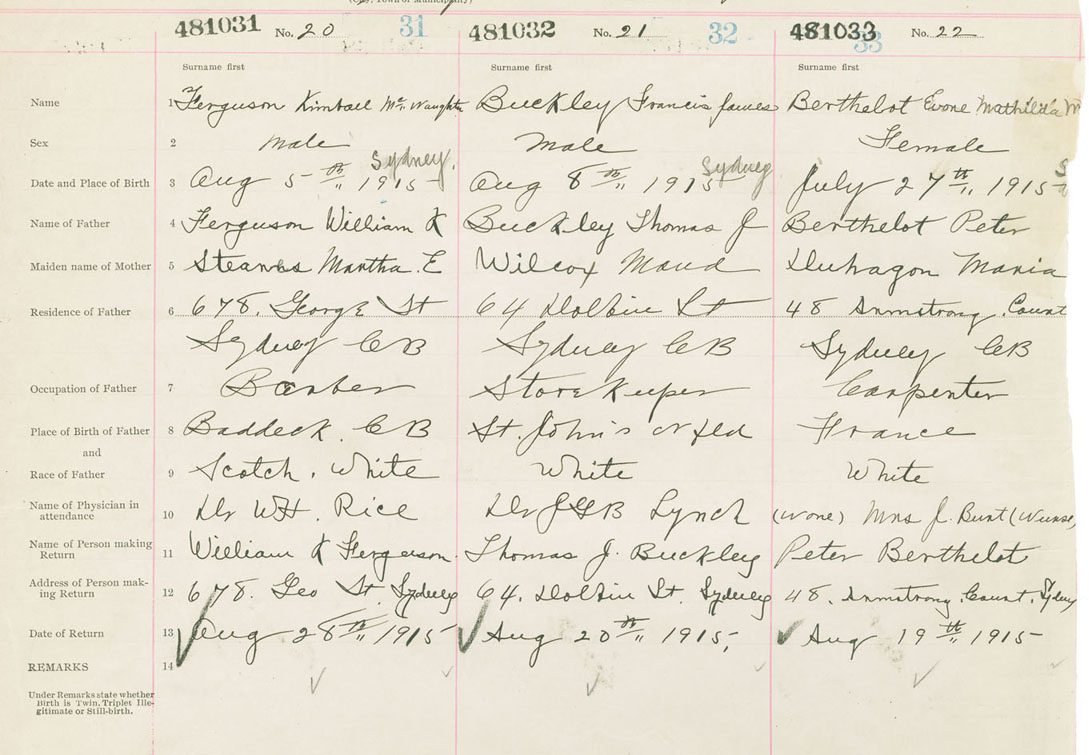 (City, Town or Municipality)
481031 No. 20 31 481032 No. 21 32 481033 No. 22 33
Surname first Surname first Surname first
Name 1 Ferguson Kimball Buckley Francis James Berthelot Evone Mathilda M
Sex 2 Male Male Female
Sydney. Sydney S
Date and Place of Birth 3 Aug 5th 1915 Aug 8th 1915 July 27th, 1915
Name of Father 4 Ferguson William K Buckley Thomas J Berthelot Peter
Maiden name of Mother 5 Martha. E Wilcox Maud Maria
Residence of Father 6 678. George St 64 Dolbin St 48 Armstrong Court
Sydney CB Sydney CB Sydney CB
Occupation of Father 7 Barber Store Keeper Carpenter
Place of Birth of Father 8 Baddeck. CB St. John's Nfld France
and
Race of Father 9 Scotch. White White White
Name of Physician in attendance 10 Dr WH. Rice Dr J G B Lynch (None) Mrs J. Bunt (Nurse)
Name of Person making Return 11 William K Ferguson. Thomas J. Buckley Peter Berthelot
Address of Person making Return 12 678. Geo St. Sydney 64. Dolbin St. Sydney 48. Armstrong. Court. Sydney
Date of Return 13 Aug 28th 1915 Aug 20th 1915, Aug 19th 1915
REMARKS 14
Under Remarks state whether
Birth is Twin. Triplet Ille-
gitimate or Still-birth.